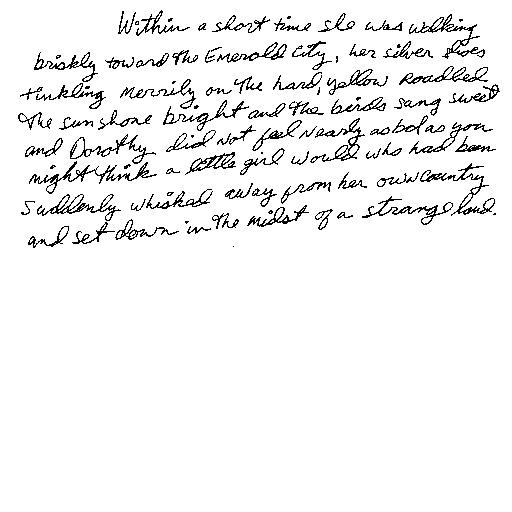 Within a short time she was walking
briskly toward the Emerald City, her silver shoes
tinkling merrily on the hard, yellow roadbed
The sun shone bright and the birds sang sweet
and Dorothy did not feel nearly as bad as you
might think a little girl would who had been
suddenly whisked away from her own country
and set down in the midst of a strange land.